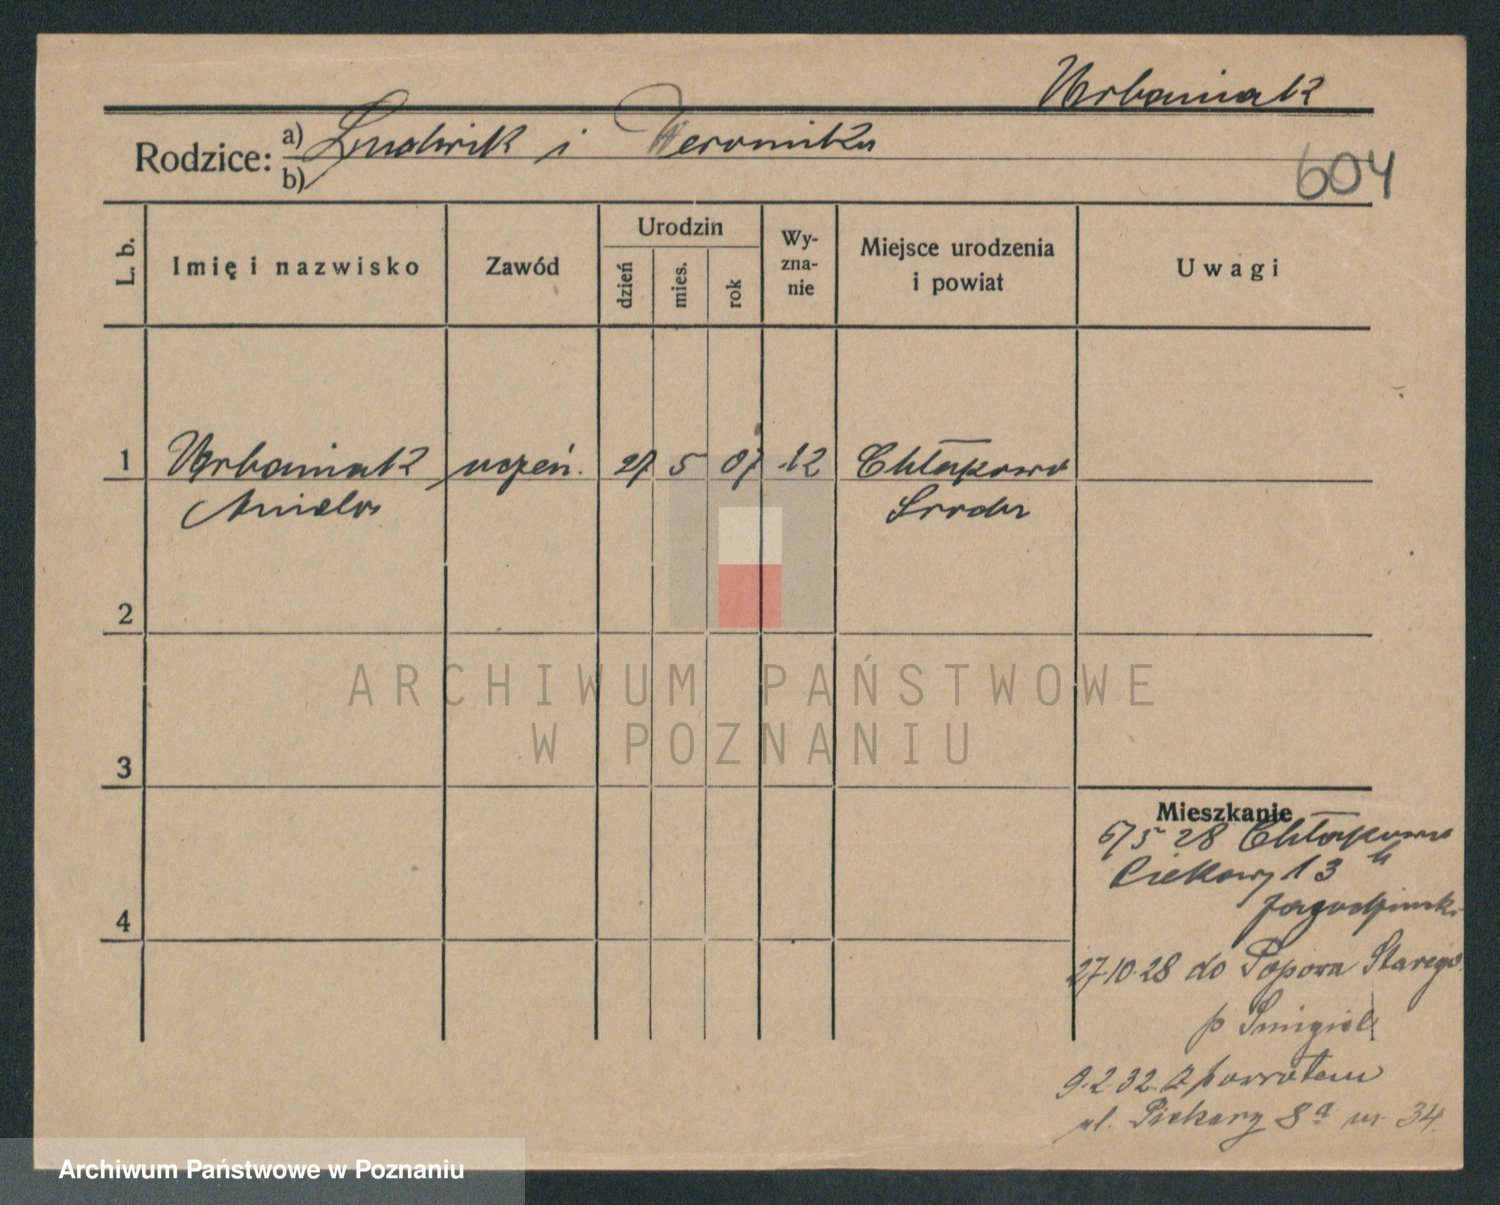 Urbaniak
Rodzice: a) Ludwik i Weronika
b)
604
L. b. Imię i nazwisko Zawód Urodzin dzień mies. rok Wy-zna-nie Miejsce urodzenia i powiat Uwagi
1 Urbaniak uczeń. 27 5 07 k Chłapowo
Aniela Środa
2
3
4
Mieszkanie
6/5 28 Chłapowo
Piekary 13
27.10.28 do Popowa Starego
p Śmigiel
9.2.32 z powrotem
ul. Piekary 8a m 34.
ARCHIWUM PAŃSTWOWE
W POZNANIU
Archiwum Państwowe w Poznaniu